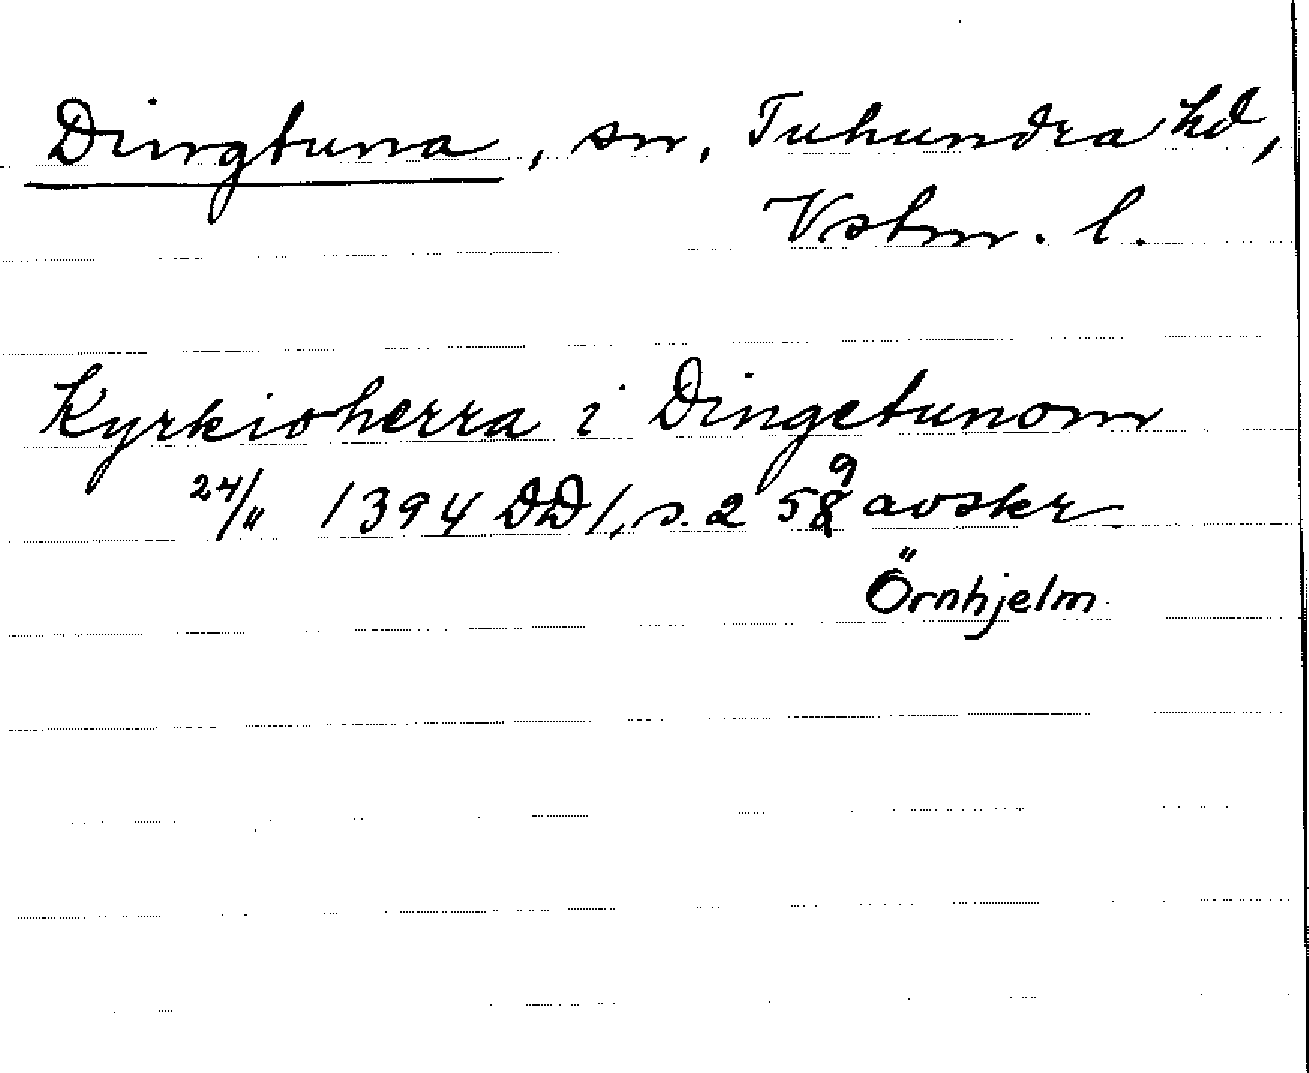 Dingtuna, sn, Tuhundra hd,
Vstm. l.
Kyrkioherra i Dingetunom
24/11 1394 DD 1, s. 259 avskr
Örnhjelm